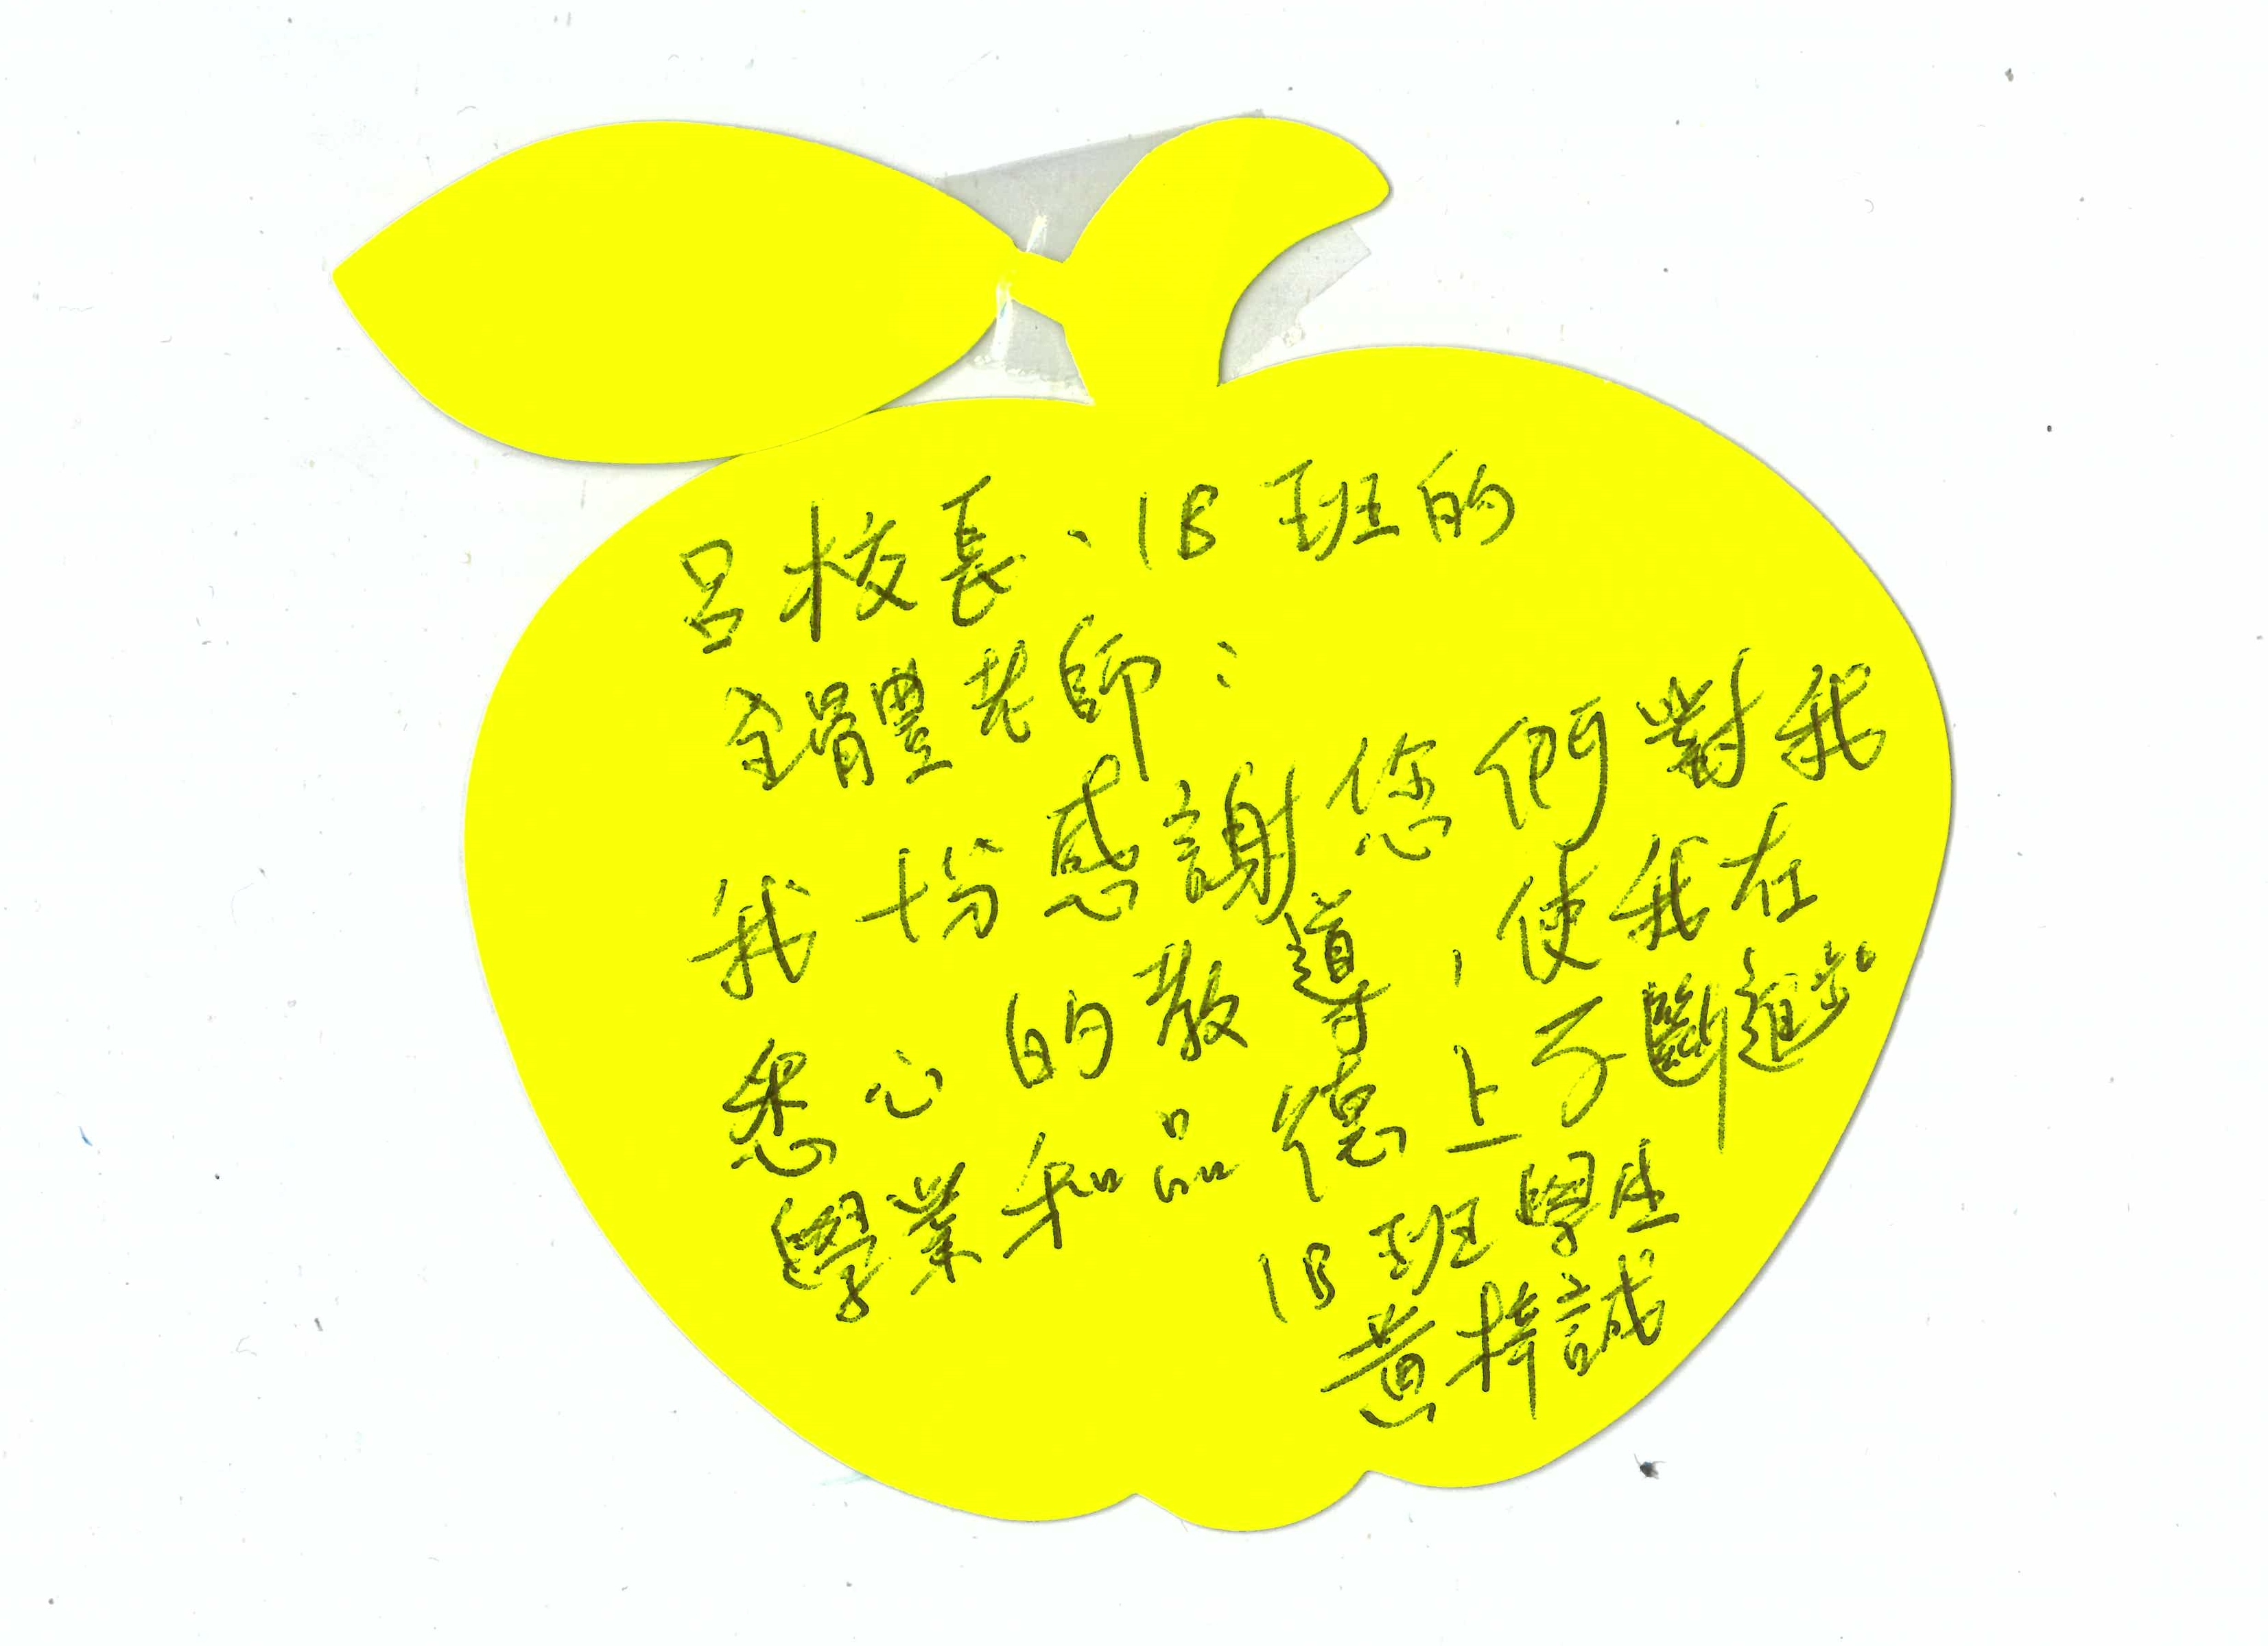 呂校長、1B班的
全體老師：
我十份感謝您們對我
悉心的教導，使我在
學業和品德上不斷進步
1B班學生
黃梓誠